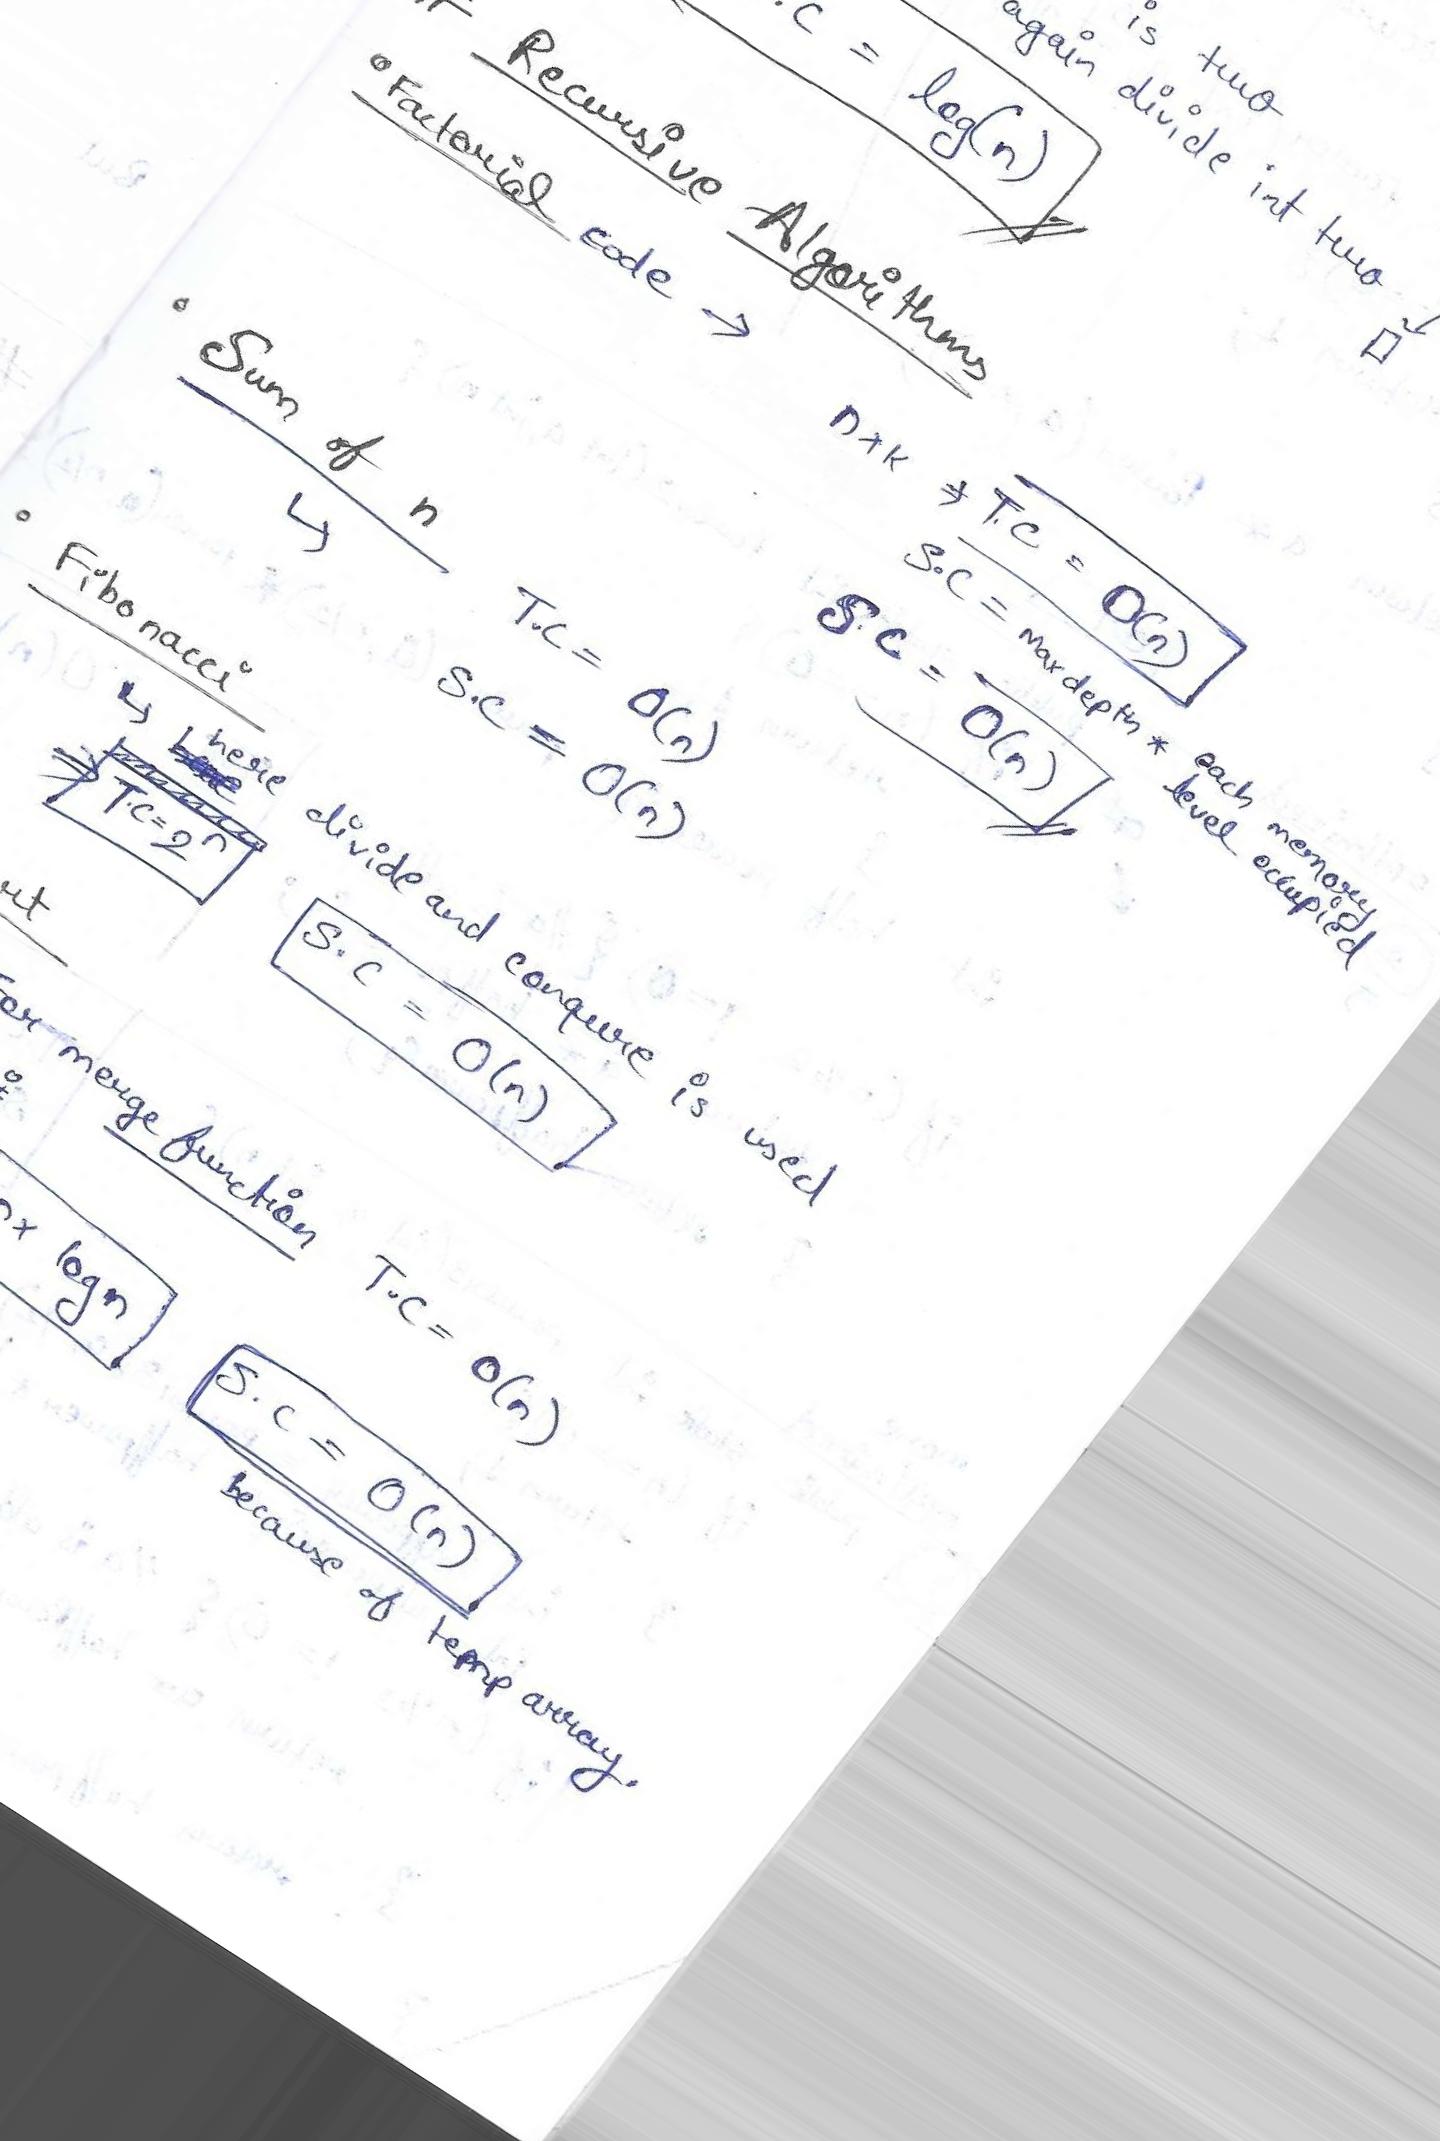 is two
again divide int two
.C = log(n)
# Recursive Algorithms
• Factorial code →
n*k ⇒ T.C = O(n)
S.C = max depth * each memory
level occupied
S.C = O(n)
• Sum of n
↳ T.C = O(n)
S.C = O(n)
• Fibonacci
↳ here divide and conqure is used
⇒ T.C = 2^n
S.C = O(n)
For merge function T.C = O(n)
nx logn
S.C = O(n)
because of temp array.